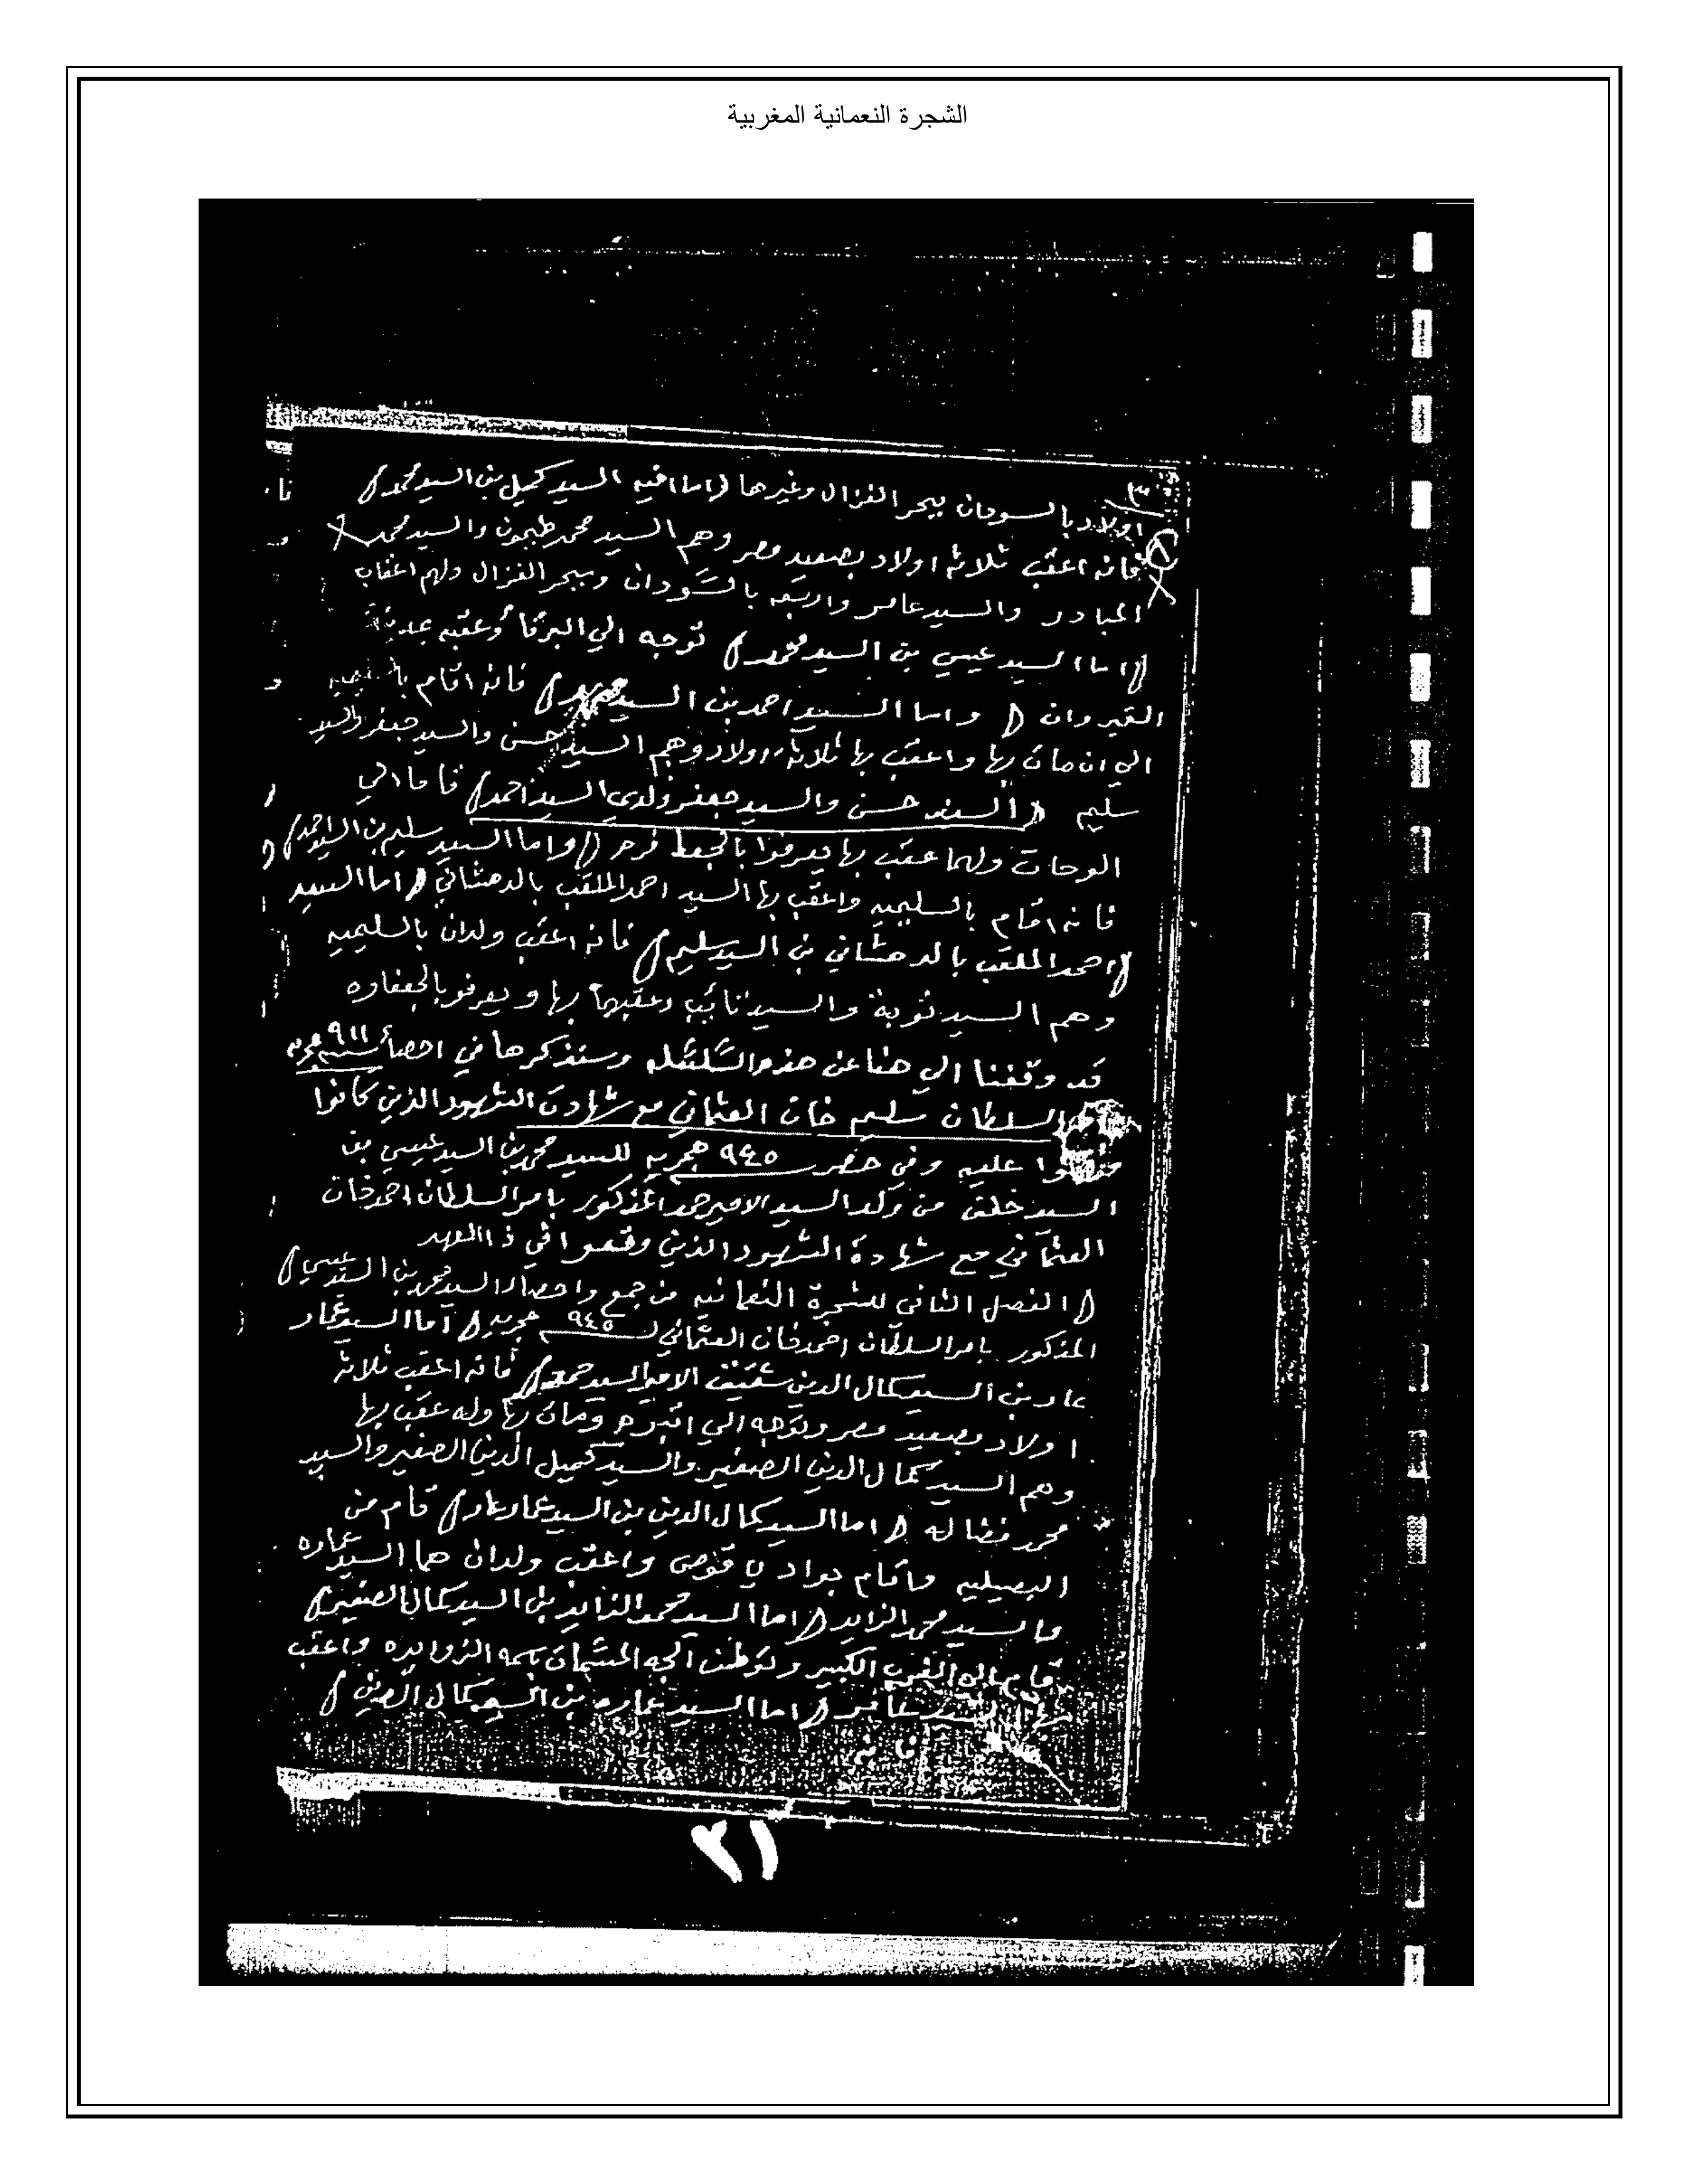 الشجرة النعمانية المغربية
اولاد بالسودان ببحر الغزال وغيرها (اما اخيه السيد كميل بن السيد محمد)
فانه اعقب ثلاثه اولاد بصعيد مصر وهم السيد محمد طيحون والسيد محمد
المبادر والسيد عامر واربعه بالسودان وببحر الغزال ولهم اعقاب
(اما السيد عيسي بن السيد محمد) توجه الي البرقا وعقبه بمدينة
القيروان (واما السيد احمد بن السيد) فانه اقام
الي ان مات بها واعقب بها ثلاثه اولاد وهم السيد حسن والسيد جعفر والسيد
سليم (السيد حسن والسيد جعفر ولدي السيد احمد) قاما الي
الوحات ولهما عقب بها يعرفوا (واما السيد سليم بن السيد احمد)
فانه اقام بالسليميه واعقب بها السيد احمد الملقب بالدمشاني (اما السيد
(احمد الملقب بالدمشاني بن السيد سليم) فانه اعقب ولدان بالسليميه
وهم السيد توبة والسيد نائب وعقبهما بها ويعرفو بالجعافره
قد وقفنا الي هنا عن هذه السلسله وسنذكرها في احصأ ٩١١
السلطان سليم خان العثماني مع شهادة الشهود الذين كانوا
عليه وفي حضر ٩٤٥ هجريه للسيد محمد بن السيد عيسي بن
السيد خلف من ولد السيد الامير حمد المذكور بامر السلطان احمد خان
العثماني مع شهادة الشهود الذين وقعوا في ذا العهد
(الفصل الثاني للشجرة النعمانيه من جمع واحصار السيد محمد بن السيد عيسي)
المذكور بامر السلطان احمد خان العثماني لسـ ٩٤٥ ـنه هجريه (اما السيد عمار
بن السيد كمال الدين شقيق الامير السيد حمد) فانه اعقب ثلاثه
اولاد بصعيد مصر وتوجه الي ومات بها وله عقب بها
وهم السيد كمال الدين الصغير والسيد كميل الدين الصغير والسيد
محمد فضاله (اما السيد كمال الدين بن السيد عمار) قام من
البصيليه واقام بوادي قوص واعقب ولدان هما السيد عماره
والسيد محمد الزايد (اما السيد محمد الزايد بن السيد كمال الصغير)
قام الي الغرب الكبير وتوطن واعقب
بها السيد عامر (اما السيد عماره بن السيد كمال الدين)
فانه
٣١